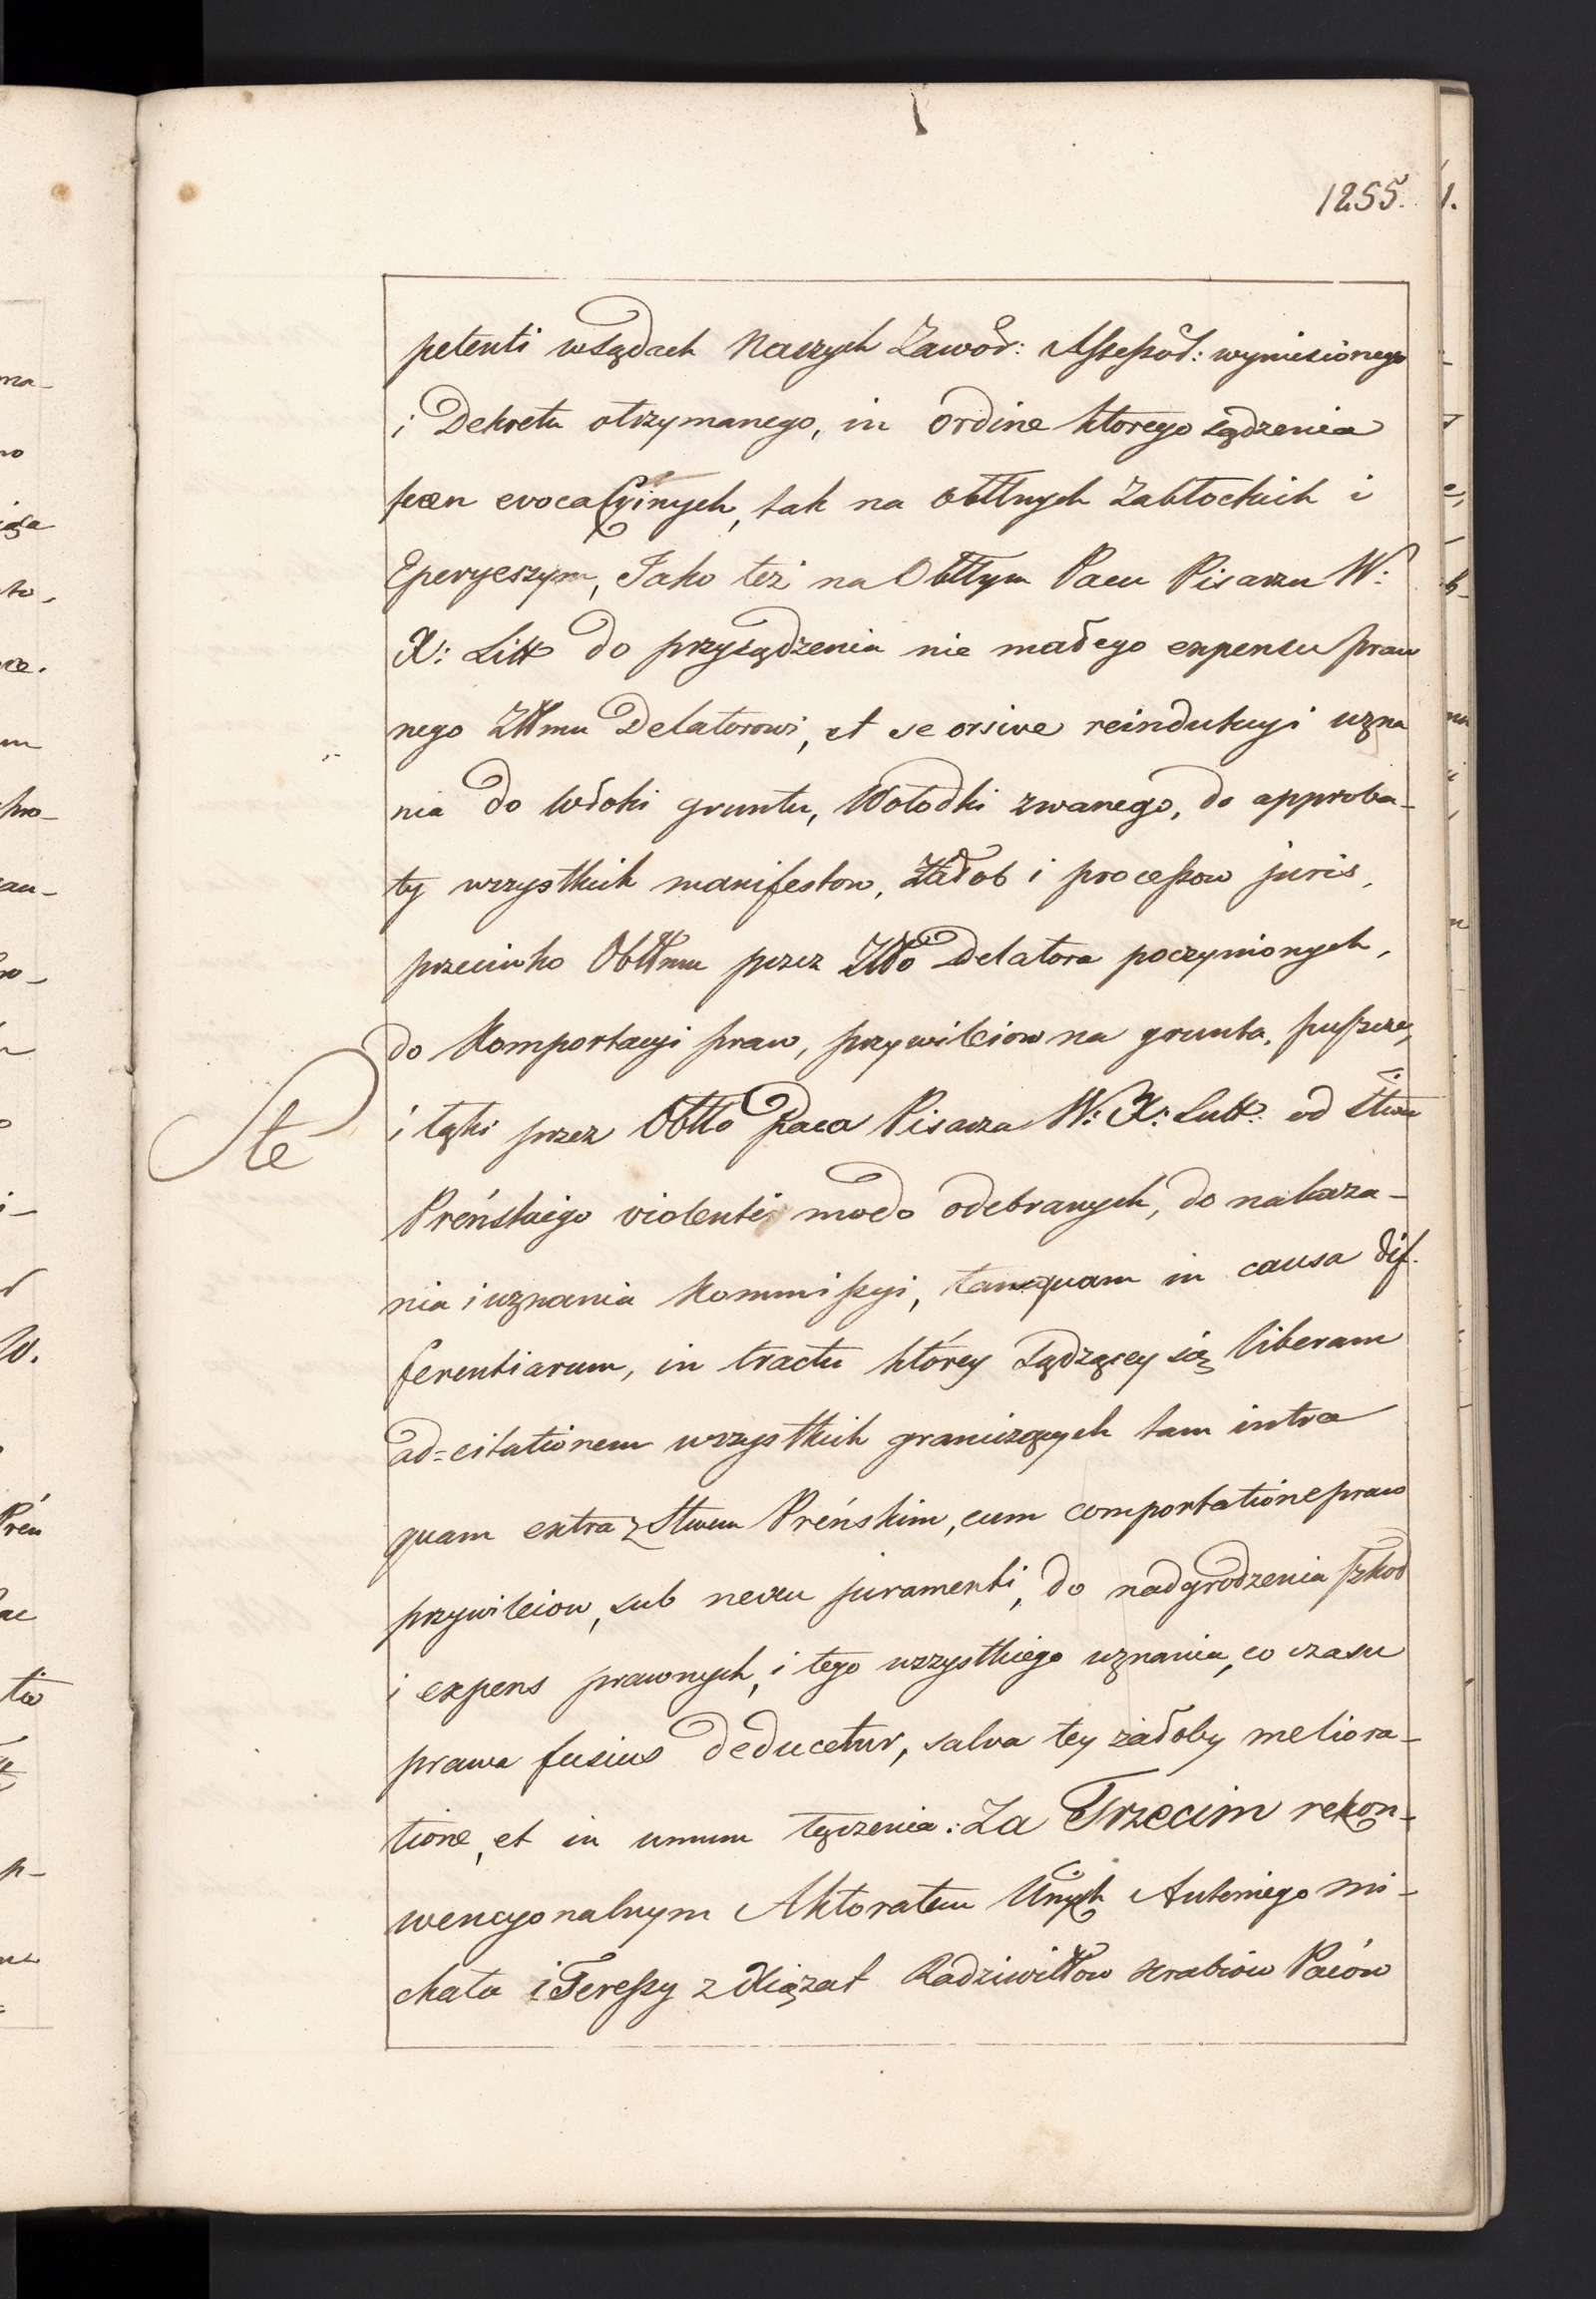 1255.
petenti w Sądach Naszych Zawod: Assessor: wyniesionego
i Dekretu otrzymanego, in ordine ktorego sądzenia
pæn evocacyinych, tak na obttnych Zabłockich i
Eperyeszym, Jako też na Obttym Pacu Pisarzu W:
X: Litt do przysądzenia nie małego expensu praw
nego Żttmu Delatorowi, et se orsive reindukcyi uzna
nia do włoki gruntu, Wołodki zwanego, do approba-
ty wszystkich manifestow, Żałob i processow juris,
przeciwko Obttnmu przez Żttto Delatora poczynionych,
do Komportacyi praw, przywileiow na grunta, puszczę,
i łąki przez Obtto Paca Pisarza W: X: Litt: od Sttwa
Ste
Preńskiego violenti modo odebranych, do nakaza-
nia i uznania Kommissyi, tanquam in causa dif-
ferentiarum, in tractu którey sądzącey się liberam
ad=citationem wszystkich graniczących tam intra
quam extra z Sttwem Preńskim, cum comportatione praw
przywileiow, sub nexu juramenti, do nadgrodzenia szkod
i expens prawnych, i tego wszystkiego uznania, co czasu
prawa fusius deducetur, salva tey żałoby meliora-
tione, et in unum łączenia: Za Trzecim rekon-
wencyonalnym Aktoratem Urnych Antoniego Mi-
chała i Teressy z Xiążat Radziwiłłow Hrabiow Paców